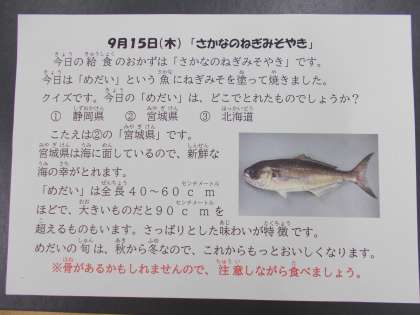 9月15日(木)「さかなのねぎみそやき」
今日の給食のおかずは「さかなのねぎみそやき」です。
今日は「めだい」という魚にねぎみそを塗って焼きました。
クイズです。今日の「めだい」は、どこでとれたものでしょうか?
① 静岡県 ② 宮城県 ③ 北海道
こたえは②の「宮城県」です。
宮城県は海に面しているので、新鮮な
海の幸がとれます。
「めだい」は全長40~60cm
ほどで、大きいものだと90cmを
超えるものもいます。さっぱりとした味わいが特徴です。
めだいの旬は、秋から冬なので、これからもっとおいしくなります。
※骨があるかもしれませんので、注意しながら食べましょう。